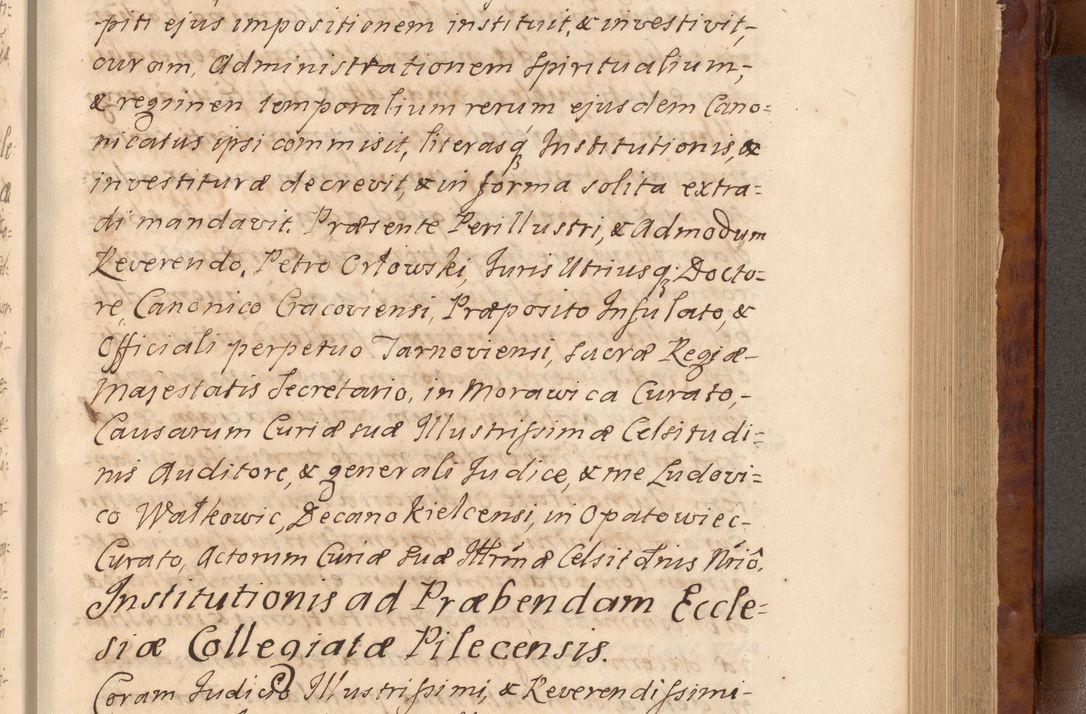 piti ejus impositionem instituit, & investivit,-
curam, Administrationem Spiritualium,-
& regimen temporalium rerum ejusdem Cano=
nicatus ipsi commisit, literasq3 Institutionis, &
investituræ decrevit, & in forma solita extra=
di mandavit. Præsente Perillustri, & Admodum
Reverendo, Petro Orłowski, Juris Utriusq3 Docto=
re, Canonico Cracoviensi, Præposito Infulato, &
Officiali perpetuo Tarnoviensi, Sacræ Regiæ-
Majestatis Secretario, in Morawica Curato,-
Causarum Curiæ suæ Illustrissimæ Celsitudi=
nis Auditore, & generali Judice, & me Ludovi=
co Wałkowic, Decano Kielcensi, in Opatowiec-
Curato, Actorum Curiæ suæ Illrmæ Celsitdnis Nriô.
Institutionis ad Præbendam Eccle=
siæ Collegiatæ Pilecensis.
Coram Judicio Illustrissimi, & Reverendissimi-